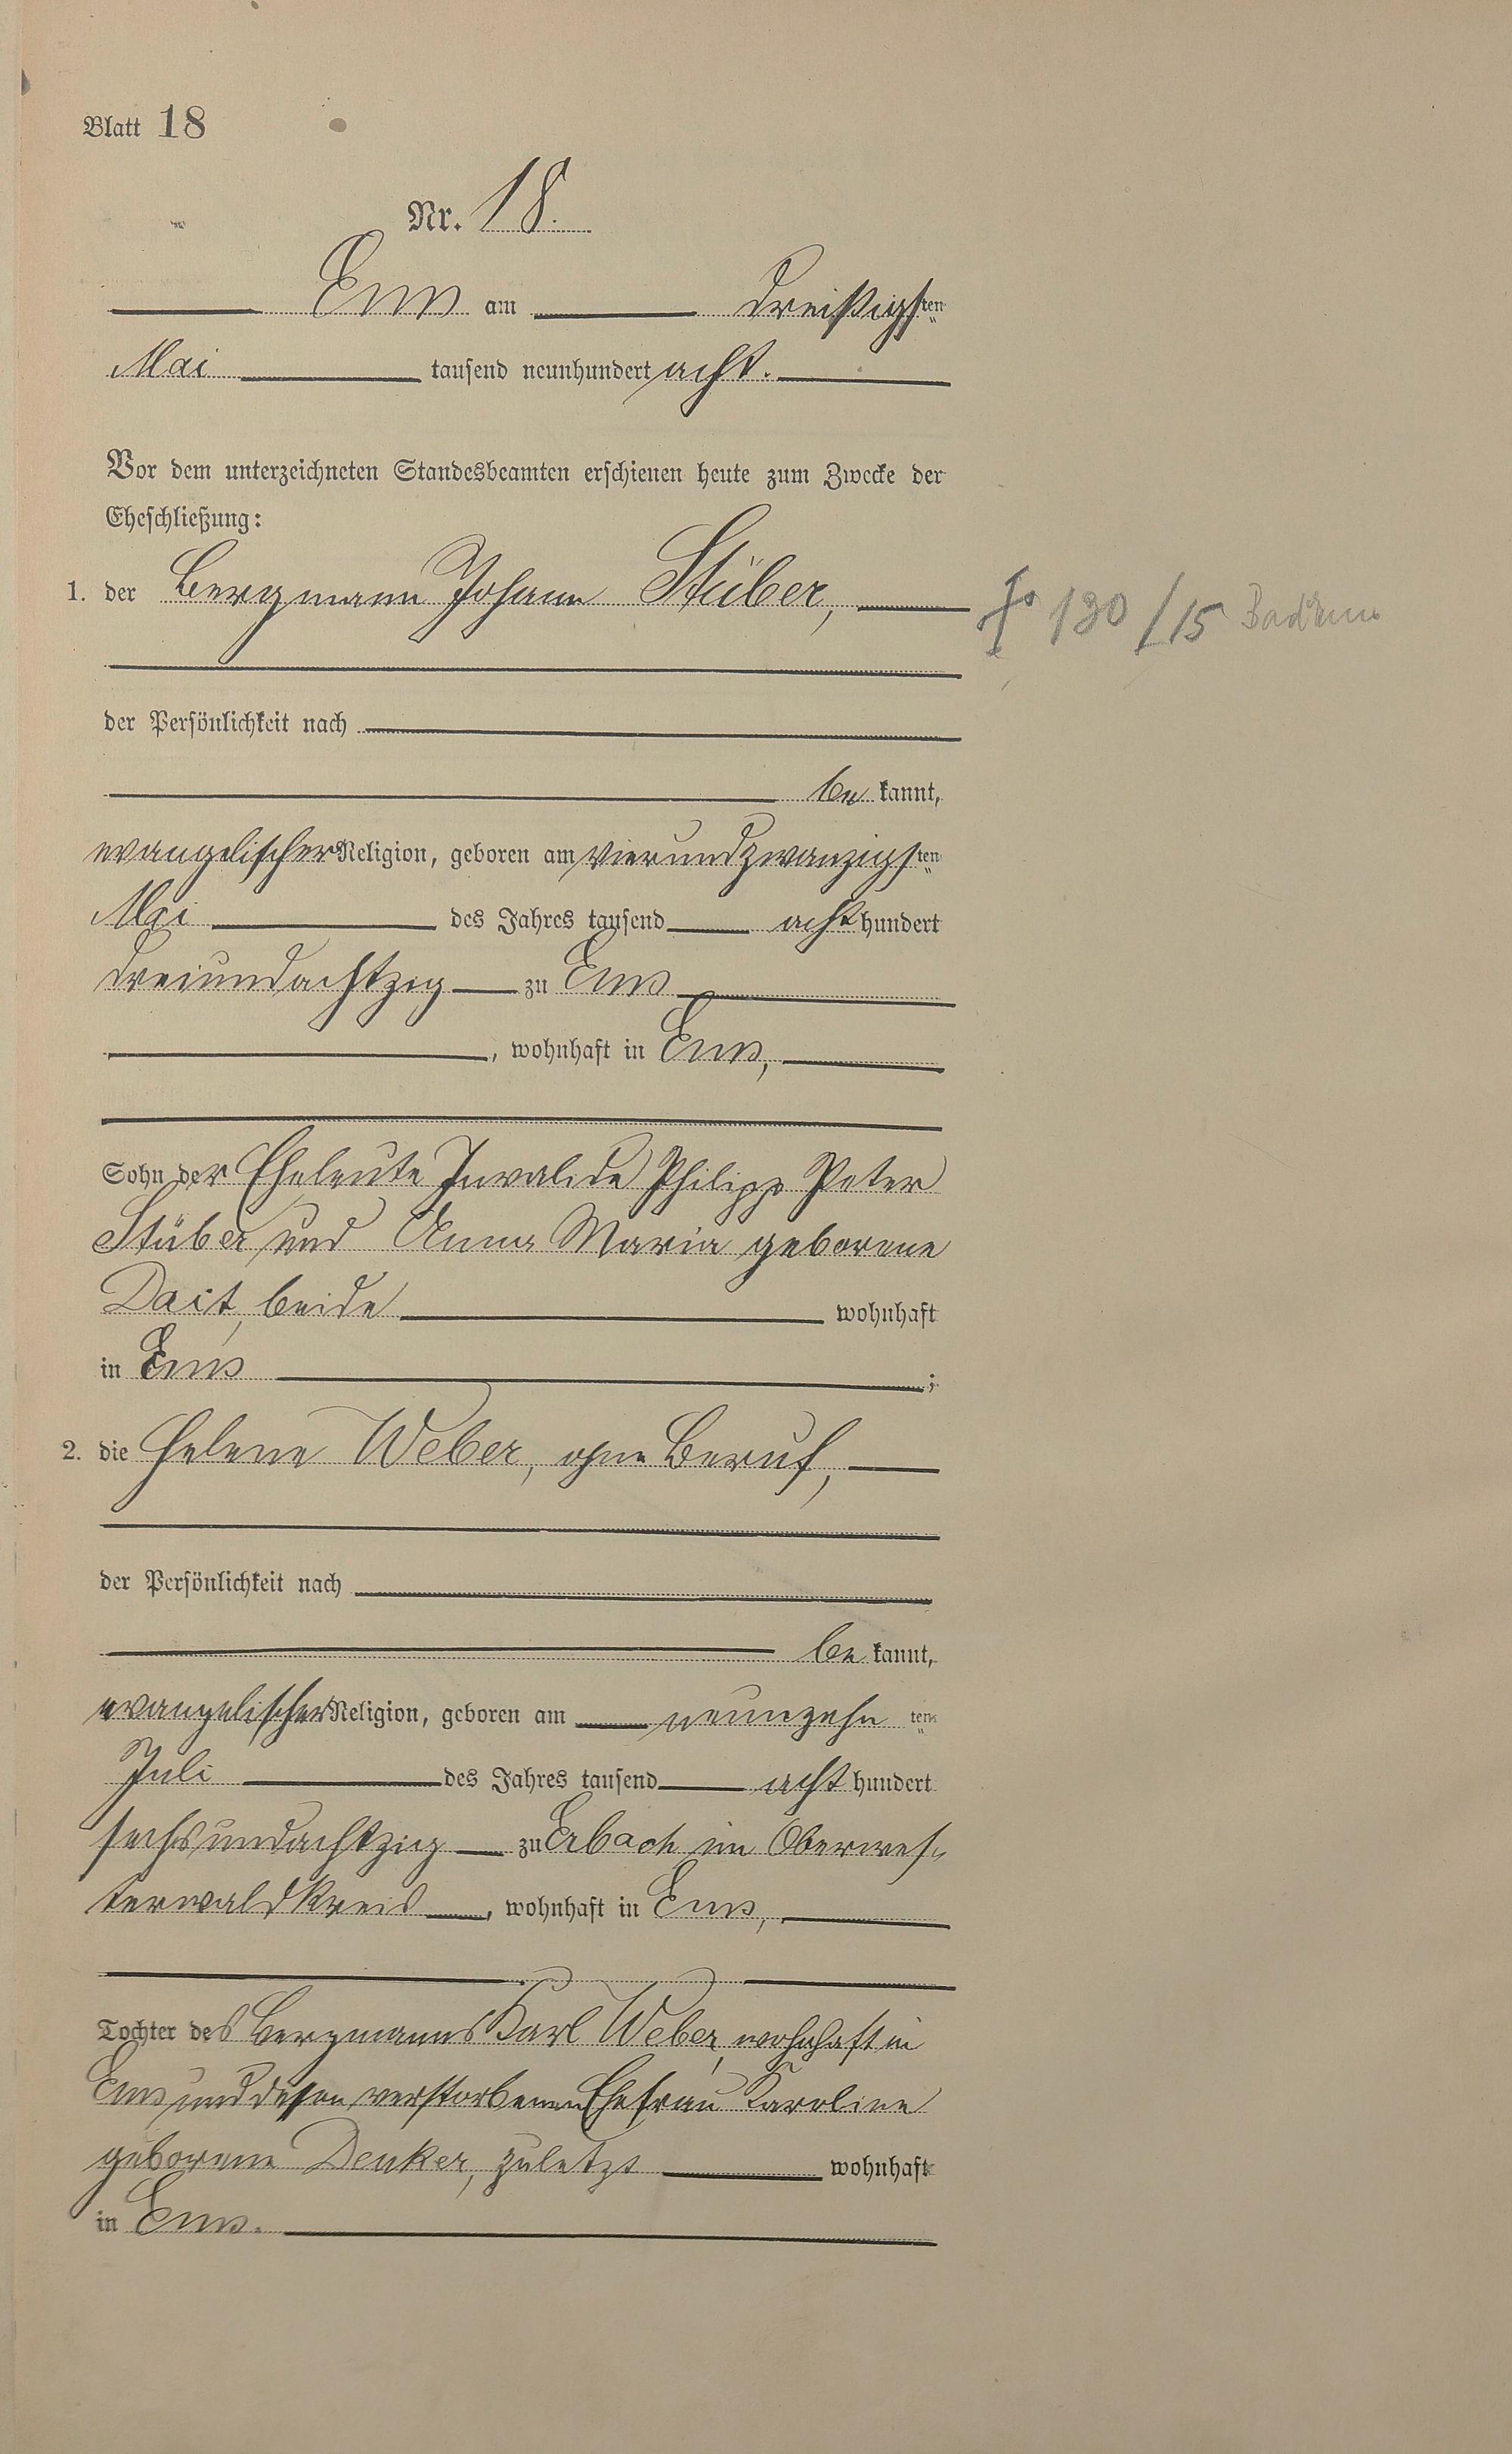 Blatt 18
Nr. 18.
Ems am dreißigsten
Mai tausend neunhundert acht.
Vor dem unterzeichneten Standesbeamten erschienen heute zum Zwecke der
Eheschließung:
1. der Bergmann Johann Stüber,
130/15
der Persönlichkeit nach
be kannt,
evangelischer Religion, geboren am vierundzwanzigsten
Mai des Jahres tausend acht hundert
dreiundachtzig zu Ems
, wohnhaft in Ems,
Sohn der Eheleute Invalide Philipp Peter
Stüber und Anna Maria geborene
Dait, beide wohnhaft
in Ems ;
2. die Helene Weber, ohne Beruf,
der Persönlichkeit nach
be kannt,
evangelischer Religion, geboren am neunzehn ten
Juli des Jahres tausend acht hundert
sechsundachtzig zu Erbach im Oberwes-
terwaldkreis , wohnhaft in Ems,
Tochter des Bergmanns Karl Weber, wohnhaft in
Ems und dessen verstorbenen Ehefrau Karoline
geborene Denker, zuletzt wohnhaft
in Ems.